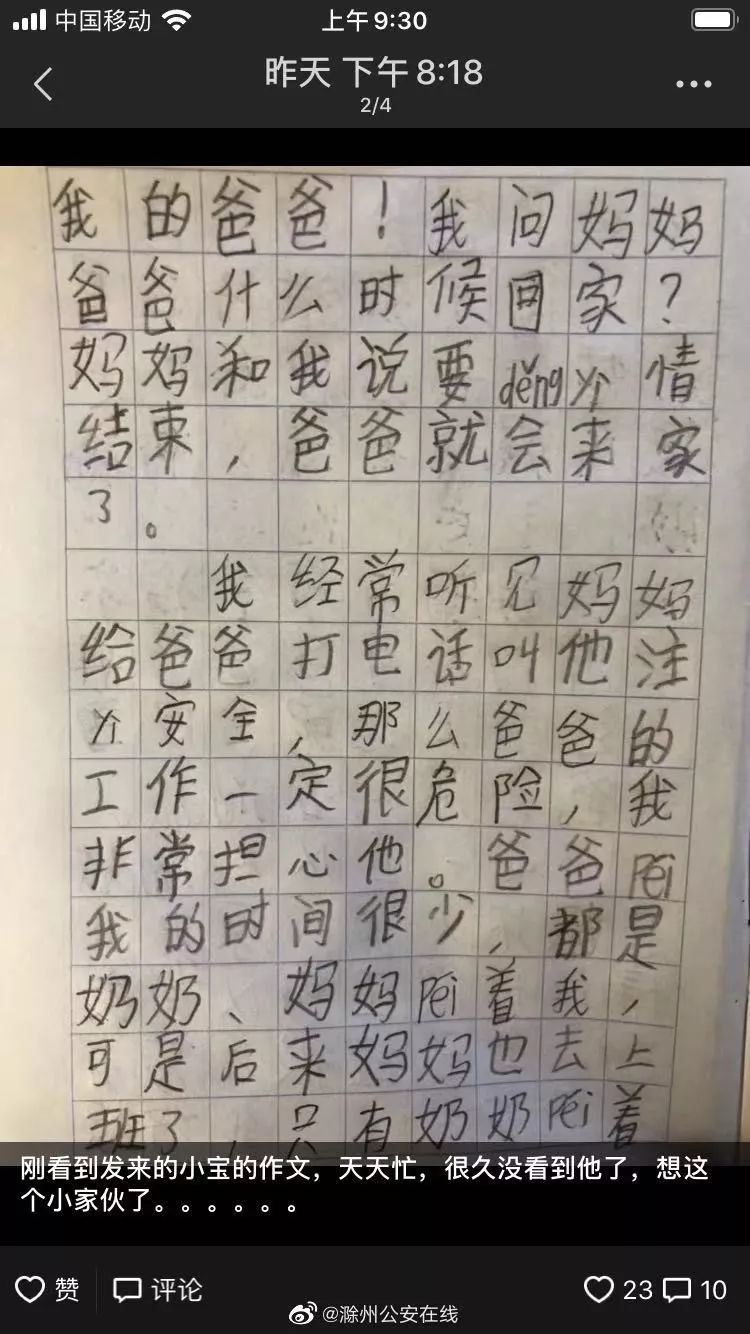 中国移动 上午9:30
昨天 下午8:18
2/4
我的爸爸！我问妈妈
爸爸什么时候回家？
妈妈和我说要děng疒情
结束，爸爸就会来家
了。
我经常听见妈妈
给爸爸打电话叫他注
安全，那么爸爸的
工作一定很危险，我
非常担心他。爸爸péi
我的时间很少，都是
奶奶、妈妈péi着我，
可是后来妈妈也去上
班了，只有奶奶péi着
刚看到发来的小宝的作文，天天忙，很久没看到他了，想这
个小家伙了。。。。。。
赞 评论 23 10
@滁州公安在线